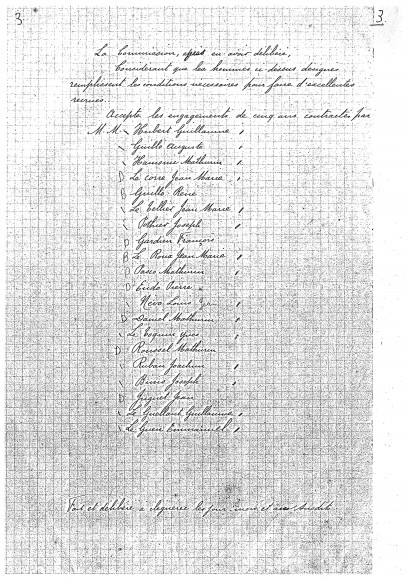 3
3.
La Commission, après en avoir délibéré,
Considérant que les hommes ci dessus désignés
remplissent les conditions nécessaires pour faire d'excellentes
recrues.
Accepte les engagements de cinq ans contractés par
M.M. Hubert Guillaume
Guillo Auguste
Hamonic Mathurin
D Le Corre Jean Marie
B Guillo René
Le Tellier Jean Marie
Pothier Joseph
D Gardien François
B Le Roux Jean Marie
D Pasco Mathurin
D Eudo Pierre
Nevo Louis
D Daniel Mathurin
Le Yves
D Roussel Mathurin
Ruban Joachim
Joseph
D Jean
Le Guellant Guillaume
Le Guen Emmanuel
Fait et délibéré à les jour, mois et an susdit